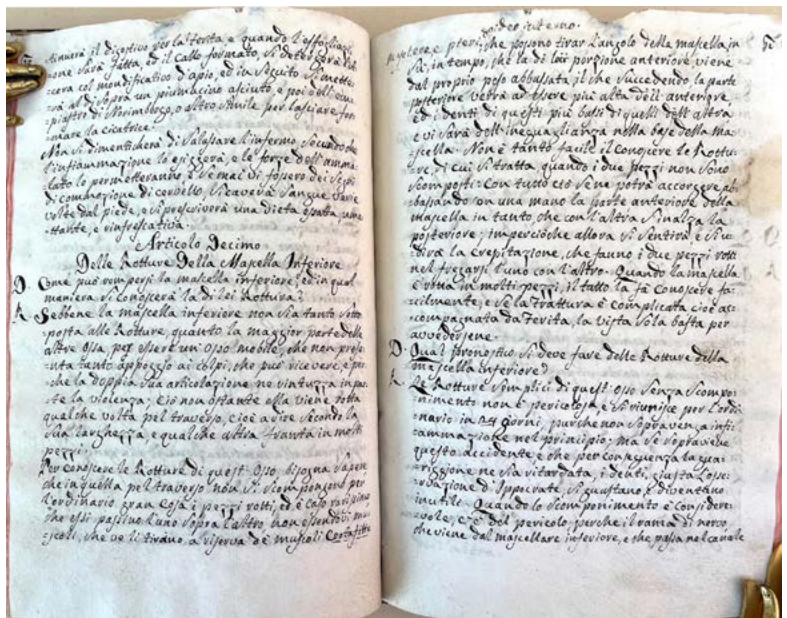 tinuerà il digestivo per la ferita, e quando l'esfogliazi=
one sarà fatta, ed il callo formato, si detergerà l'ul=
cera col mondificativo d'apio, ed in seguito si mette=
rà al di sopra un piumacino asciutto, e poi dell'em=
=piastro di Norimberga, o altro simile per lasciare for=
mare la cicatrice.
Non si dimenticherà di salassare l'infermo, secondo che
l'infiammazione lo esiggerà, e le forze dell'amma=
lato lo permetteranno e se mai vi fossero dei segni
di commozione di cervello, si caverà sangue varie
volte dal piede, e si prescriverà una dieta esatta, ume=
ttante, e rinfrescativa.
Articolo Decimo
Delle Rotture Della Mascella Inferiore
D. Come può rompersi la mascella inferiore, ed in qual
maniera si conoscerà la di lei Rottura?
R. Sebbene la mascella inferiore non sia tanto sotto=
posta alle Rotture, quanto la maggior parte delle
altre ossa, per essere un osso mobile, che non prese=
nta tanto appoggio ai colpi, che può ricevere, e per=
che la doppia sua articolazione ne rintuzza in par=
te la violenza; ciò non ostante ella viene rotta
qualche volta pel traverso, cioè a dire secondo la
sua larghezza, e qualche altra franta in molti
pezzi.
Per conoscere le Rotture di quest'osso bisogna sapere
che in quella pel traverso non si scompongono per
l'ordinario gran cosa i pezzi rotti, ed è caso rarissimo
che essi passino l'uno sopra l'altro, non essendovi mu=
scoli, che ve li tirano, a riserva de' muscoli Costafitta
goideo interno.
massetere, e pteri, che possono tirar l'angolo della mascella in
su, in tempo, che la di loir porzione anteriore viene
dal proprio peso abbassata, il che succedendo la parte
posteriore verrà ad essere più alta dell'anteriore,
ed i denti di questi più bassi di quelli dell'altra
e vi sarà dell'ineguaglianza nella base della ma=
scella. Non è tanto facile il conoscere le Rottu=
re, di cui si tratta quando i due pezzi non sono
scomposti: Con tutto ciò se ne potrà accorgere, ab=
bassando con una mano la parte anteriore della
mascella in tanto, che con l'altra s'inalza la
posteriore; imperciochè allora si sentirà, e si u=
dirà la crepitazione, che fanno i due pezzi rotti
nel fregarsi l'uno con l'altro. Quando la mascella
è rotta in molti pezzi, il tatto la fa conoscere fa=
cilmente, e se la frattura è complicata cioè ac=
compagnata da ferita, la vista sola basta per
avvedersene.
D. Qual pronostico si deve fare delle Rotture della
mascella inferiore?
R. Le Rotture semplici di quest'osso senza scompo=
nimento non è pericolosa, e si riunisce per l'ordi=
nario in giorni, purchè non sopravenga infi=
ammazione nel principio; ma se sopraviene
questo accidente, e che per conseguenza la gua=
rigione ne sia ritardata, i denti, giusta l'osser=
vazione d'Ippocrate, si guastano, e diventano
inutili. Quando lo scomponimento è considere=
vole, c'è del pericolo, perchè il ramo di nervo,
che viene dal mascellare inferiore, e che passa nel canale